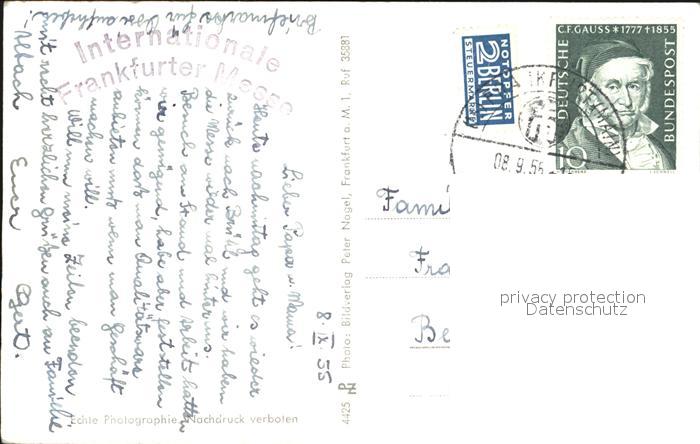 Briefmarke für Uwe aufheben!
Internationale
Frankfurter Messe
8. IX. 55
Lieber Papa u. Mama!
Heute nachmittag geht es wieder
zurück nach Brühl und wir haben
die Messe wieder mal hinter uns.
Besuch am Stand und Arbeit hatten
wir genügend, habe aber feststellen
können dass man Qualitätsware
anbieten muss wenn man Geschäft
machen will.
Will nun meine Zeilen beenden
mit recht herzlichen Grüßen auch an Familie
Albach Euer Gert.
Echte Photographie, Nachdruck verboten
4425 Photo: Bildverlag Peter Nagel, Frankfurt a. M. 1, Ruf 35881
NOTOPFER
2 BERLIN
STEUERMARKE
C.F. GAUSS * 1777 † 1855
DEUTSCHE
BUNDESPOST
10
08.9.55
Famil
Fra
Be
privacy protection
Datenschutz